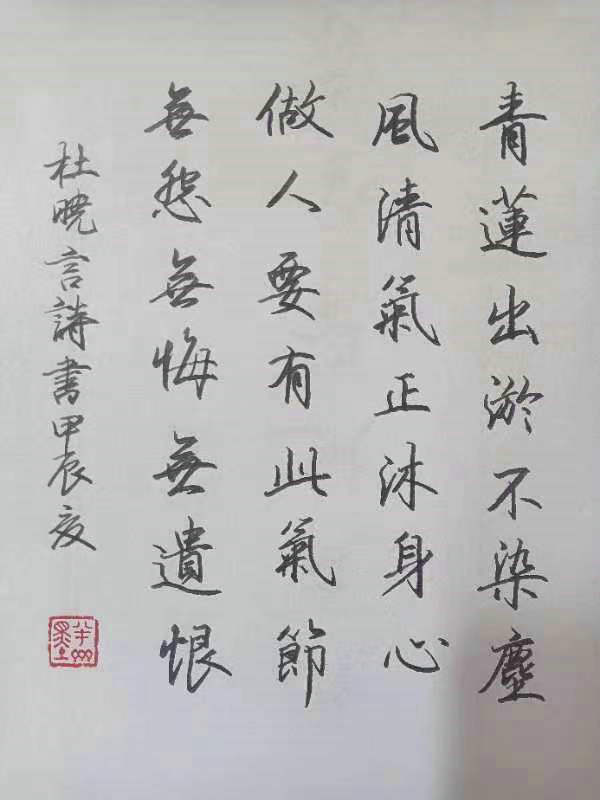 青蓮出淤不染塵
風清氣正沐身心
做人要有此氣節
無怨無悔無遺恨
杜曉言詩書甲辰夏